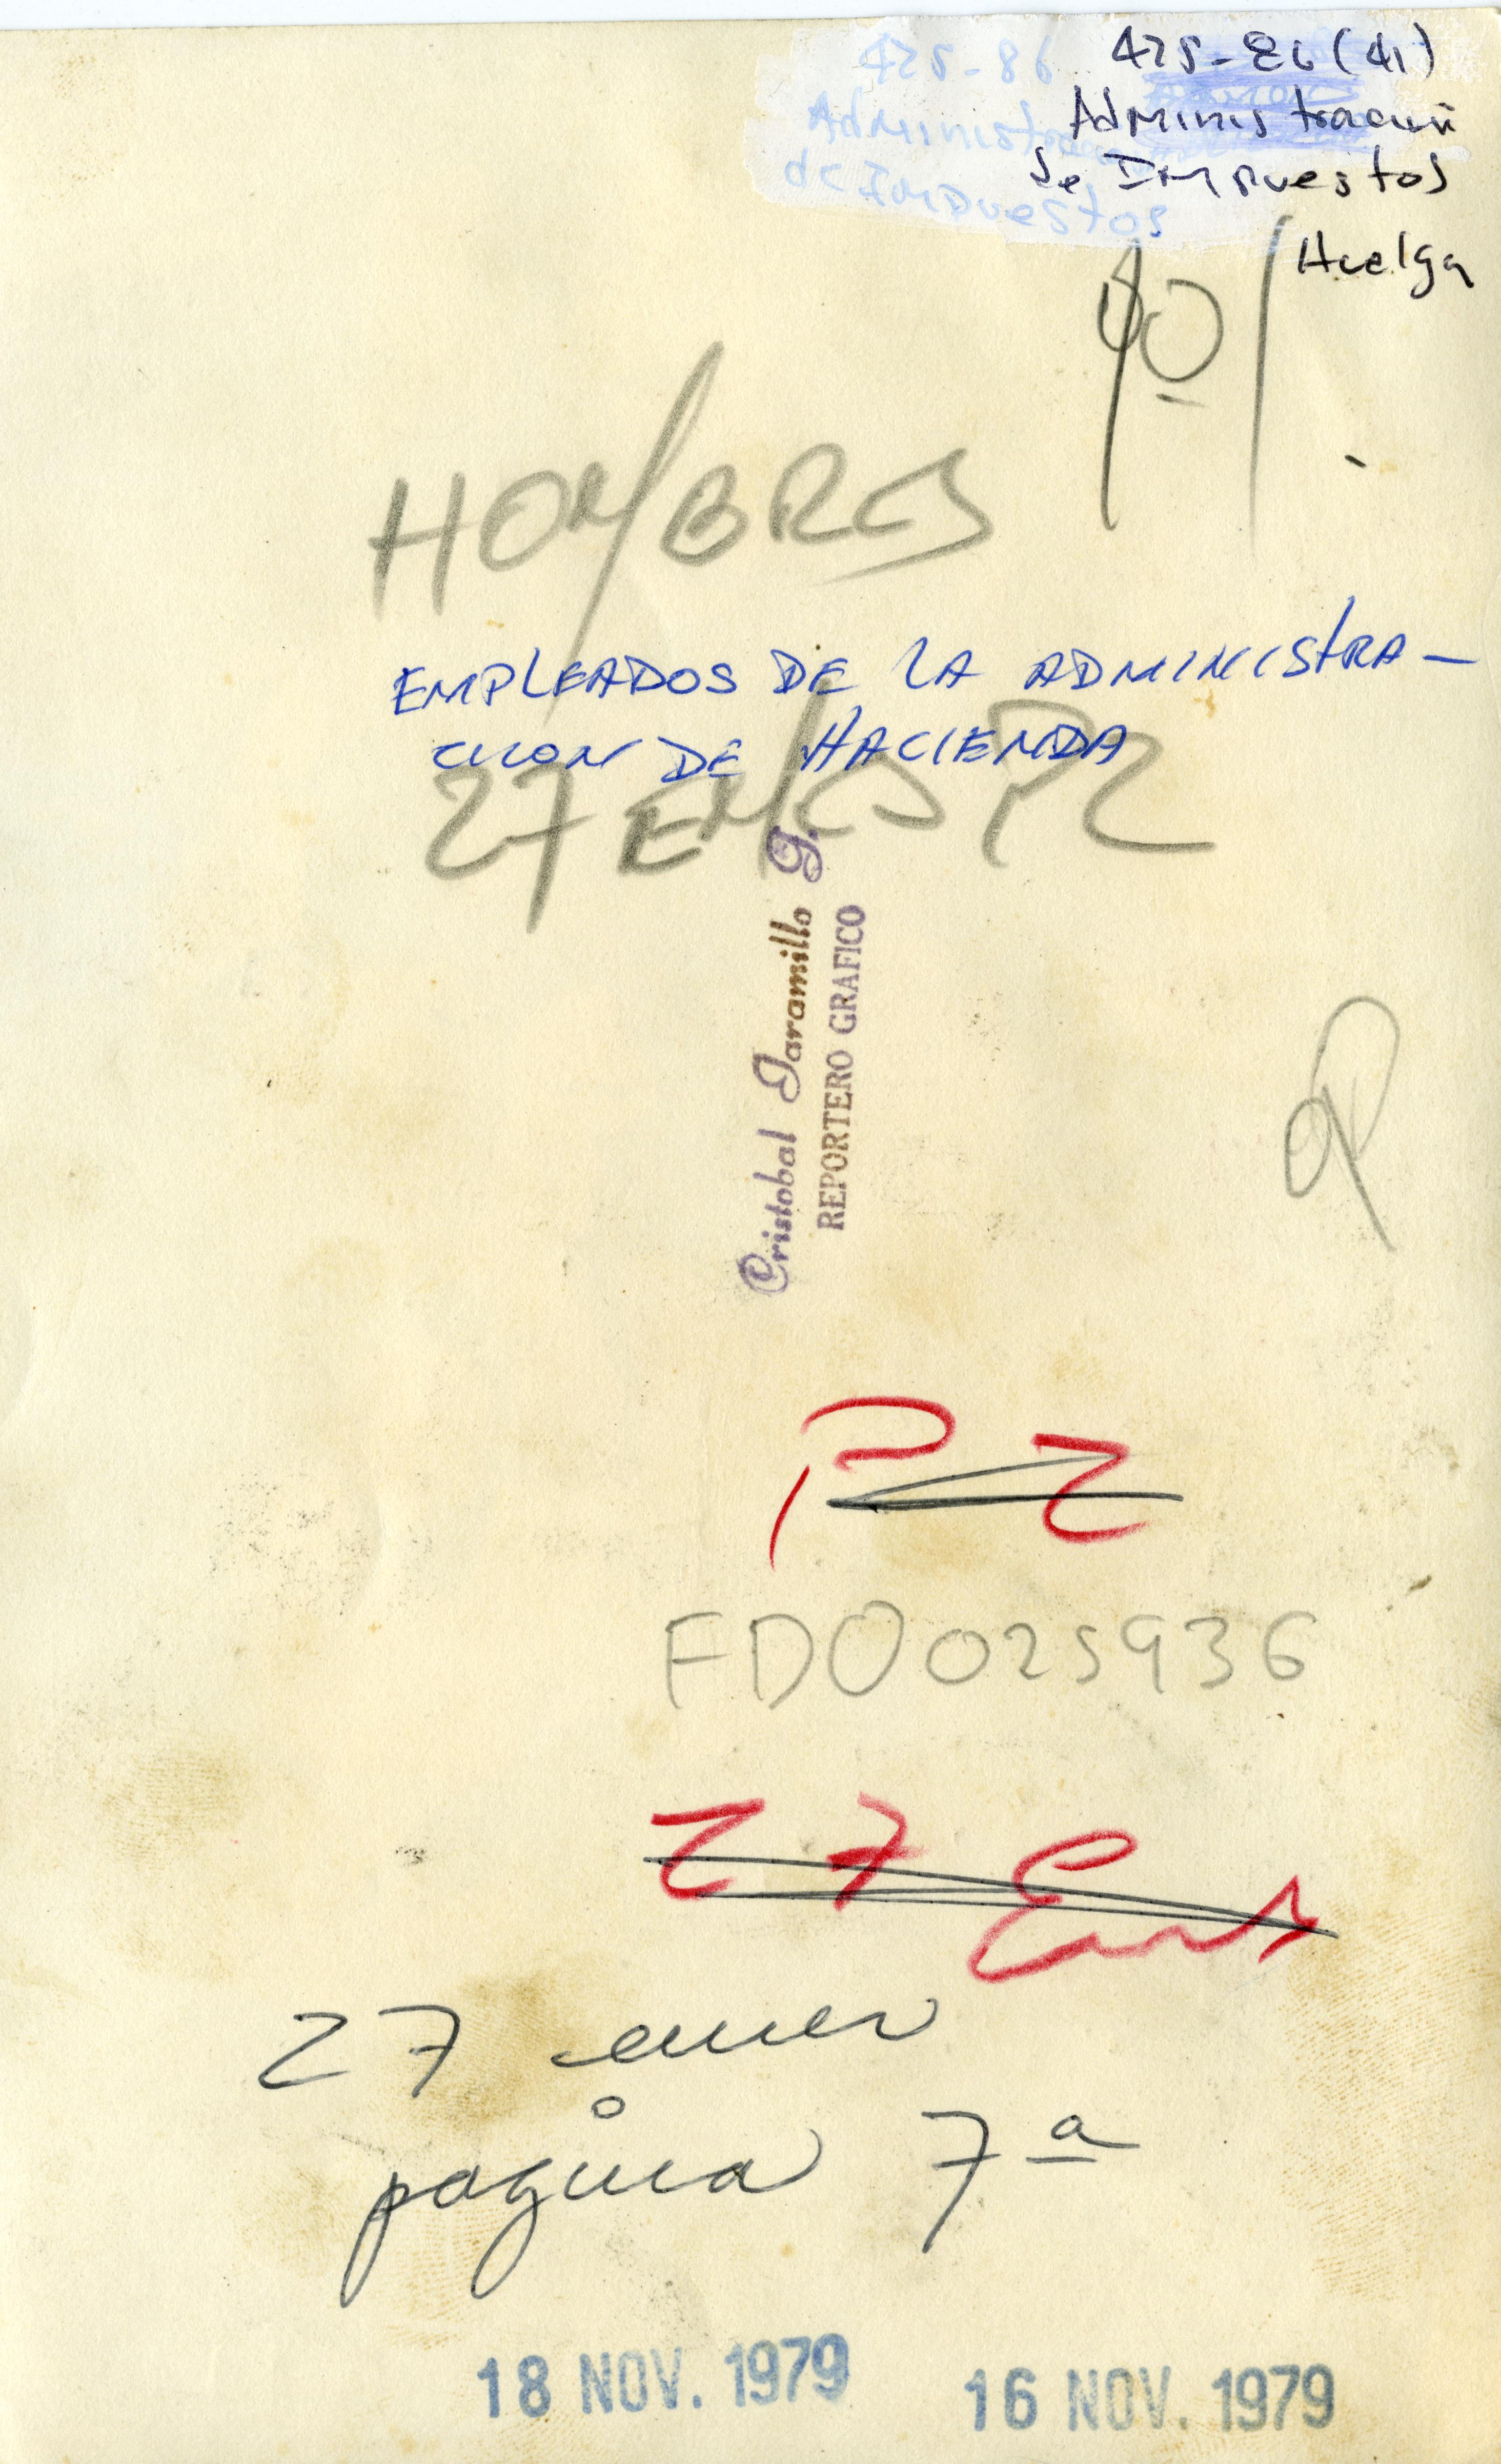 425-86 (41)
Administración
de Impuestos
Huelga
425-86
Administra
de Impuestos
40/
HOMBRES
EMPLEADOS DE LA ADMINISTRA-
CION DE HACIENDA
27 EMS P2
Cristobal Jaramillo J.
REPORTERO GRAFICO
P 2
FD0025936
27 Ems
27 emes
página 7ª
18 NOV. 1979
16 NOV. 1979